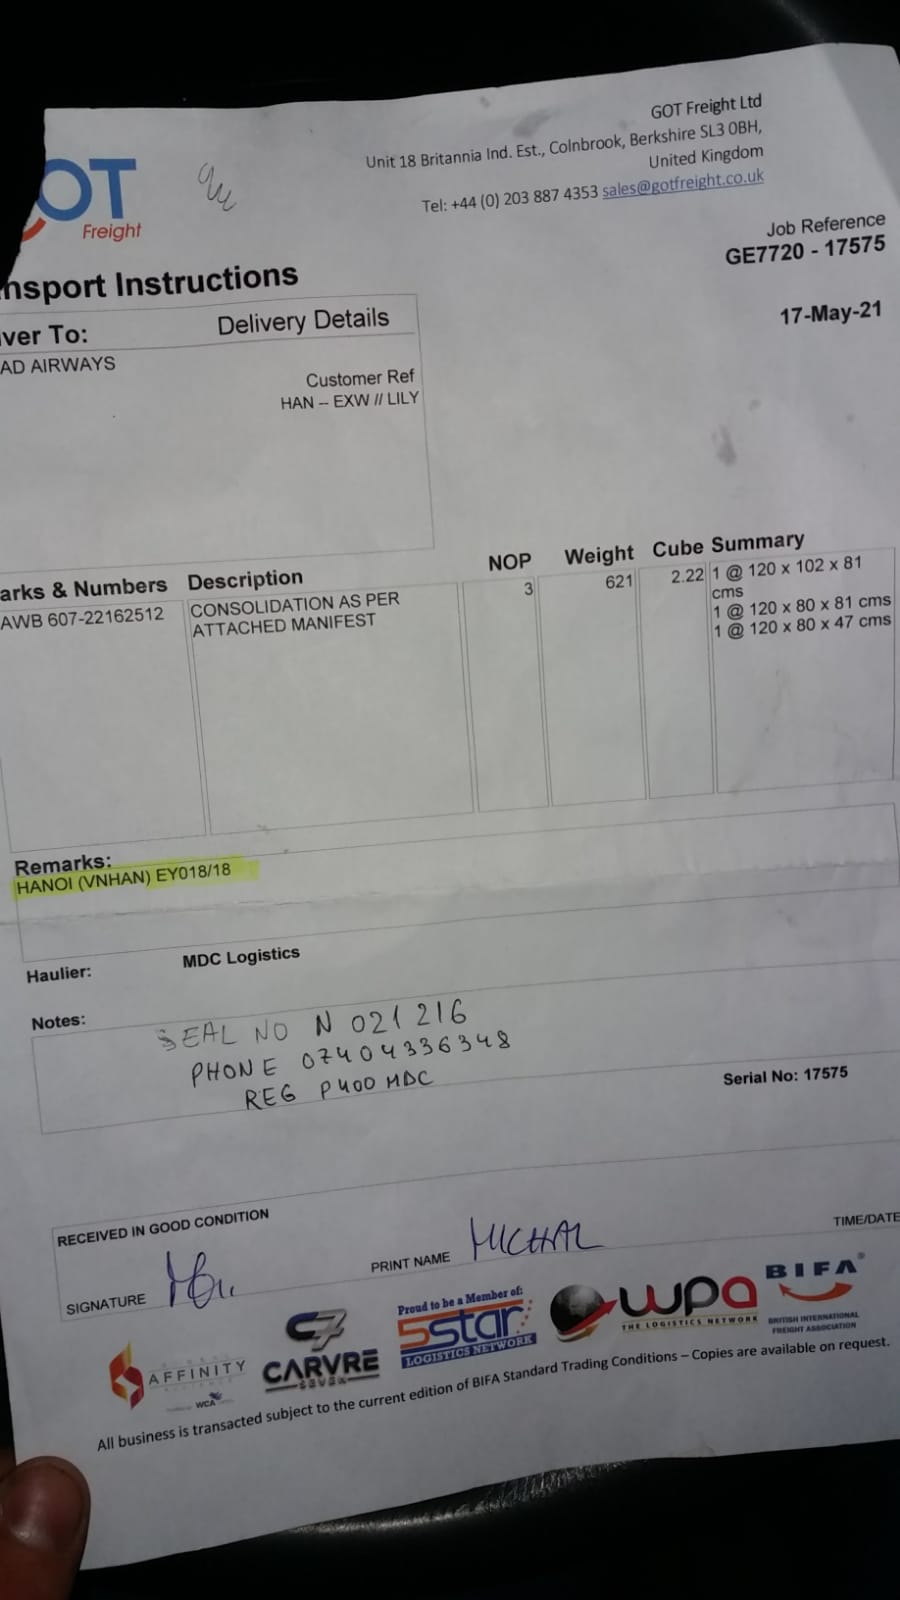 GOT Freight Ltd
Unit 18 Britannia Ind. Est., Colnbrook, Berkshire SL3 0BH,
United Kingdom
Tel: +44 (0) 203 887 4353 sales@gotfreight.co.uk
OT
Freight
Job Reference
GE7720 - 17575
nsport Instructions
17-May-21
ver To: Delivery Details
AD AIRWAYS
Customer Ref
HAN -- EXW // LILY
arks & Numbers Description NOP Weight Cube Summary
AWB 607-22162512 CONSOLIDATION AS PER 3 621 2.22 1 @ 120 x 102 x 81
ATTACHED MANIFEST cms
1 @ 120 x 80 x 81 cms
1 @ 120 x 80 x 47 cms
Remarks:
HANOI (VNHAN) EY018/18
Haulier: MDC Logistics
Notes:
SEAL NO N 021216
PHONE 07404336348
REG P400 MDC
Serial No: 17575
RECEIVED IN GOOD CONDITION
TIME/DATE
SIGNATURE PRINT NAME MICHAL
AFFINITY
WCA
C7
CARVRE
SEVEN
Proud to be a Member of:
5star
LOGISTICS NETWORK
wpa
THE LOGISTICS NETWORK
BIFA®
BRITISH INTERNATIONAL
FREIGHT ASSOCIATION
All business is transacted subject to the current edition of BIFA Standard Trading Conditions – Copies are available on request.